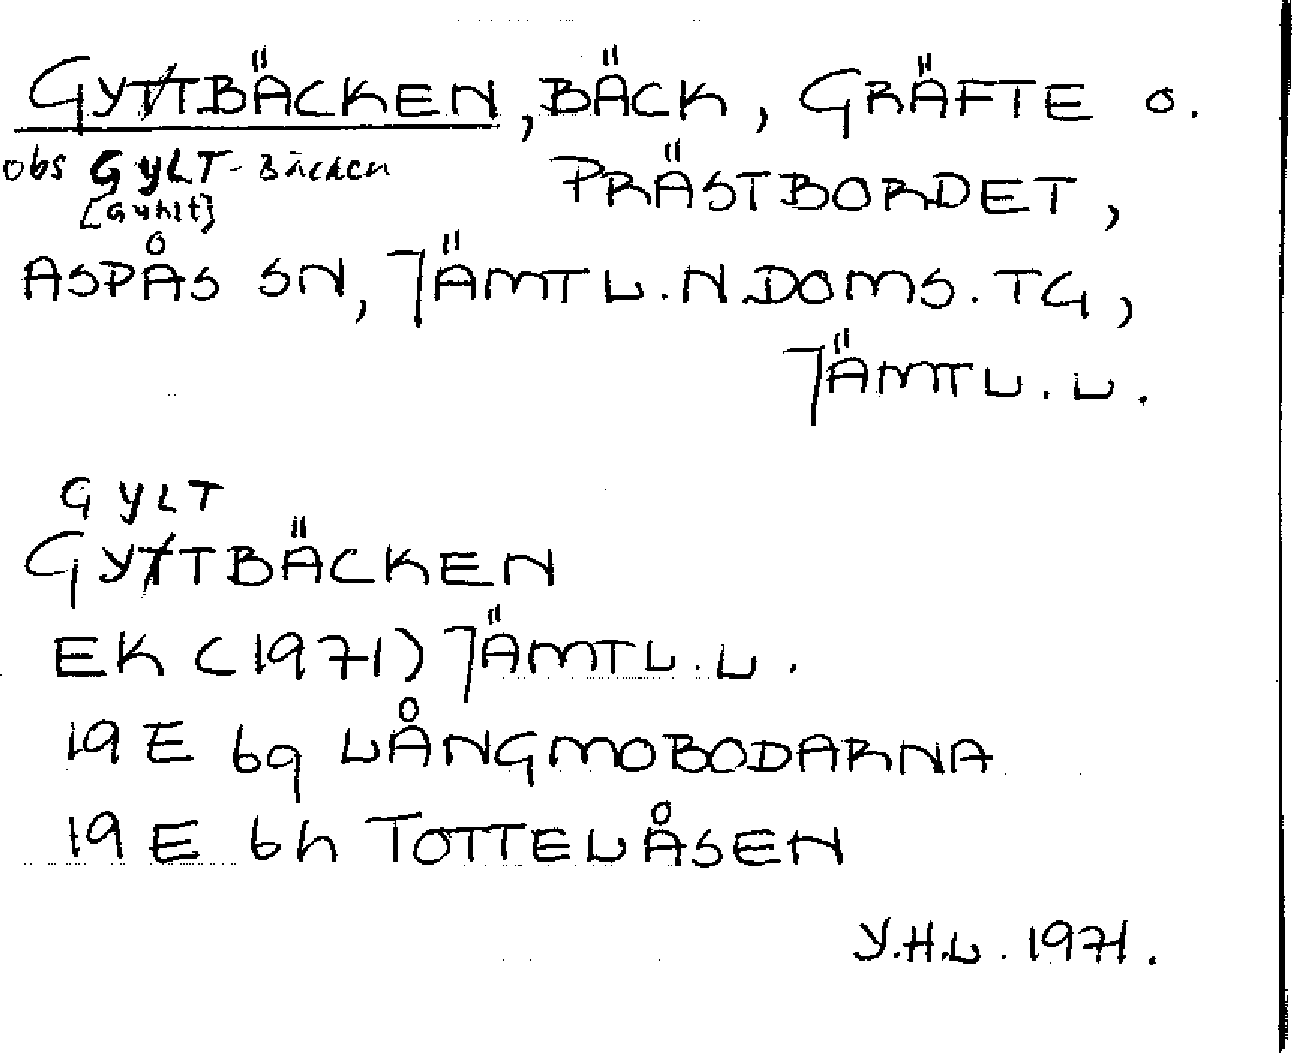 GYTTBÄCKEN, BÄCK, GRÄFTE O.
obs GYLT-Bäcken PRÄSTBORDET,
ASPÅS SN, JÄMTL. N. DOMS. TG,
JÄMTL. L.
GYLT
GYTTBÄCKEN
EK (1971) JÄMTL. L.
19 E 6g LÅNGMOBODARNA
19 E 6h TOTTELÅSEN
Y.H.L. 1971.